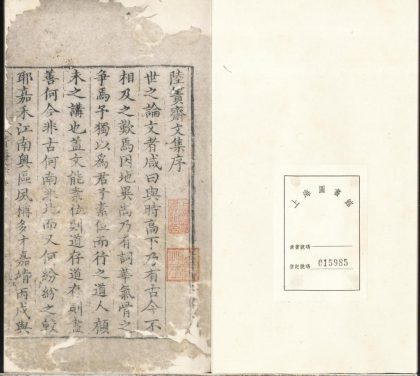 陸簣齋文集序
世之論文者咸曰與時高下乃有古今不
相及之歎焉因地異尚乃有詞華氣骨之
爭焉予獨以為君子素位而行之道人顧
未之講也蓋文能素位則道存道存則盡
善何今非古何南非北而又何紛紛之較
耶嘉禾江南奧區夙稱多士嘉靖丙戌與
上海圖書館
索書號碼
登記號碼 015985